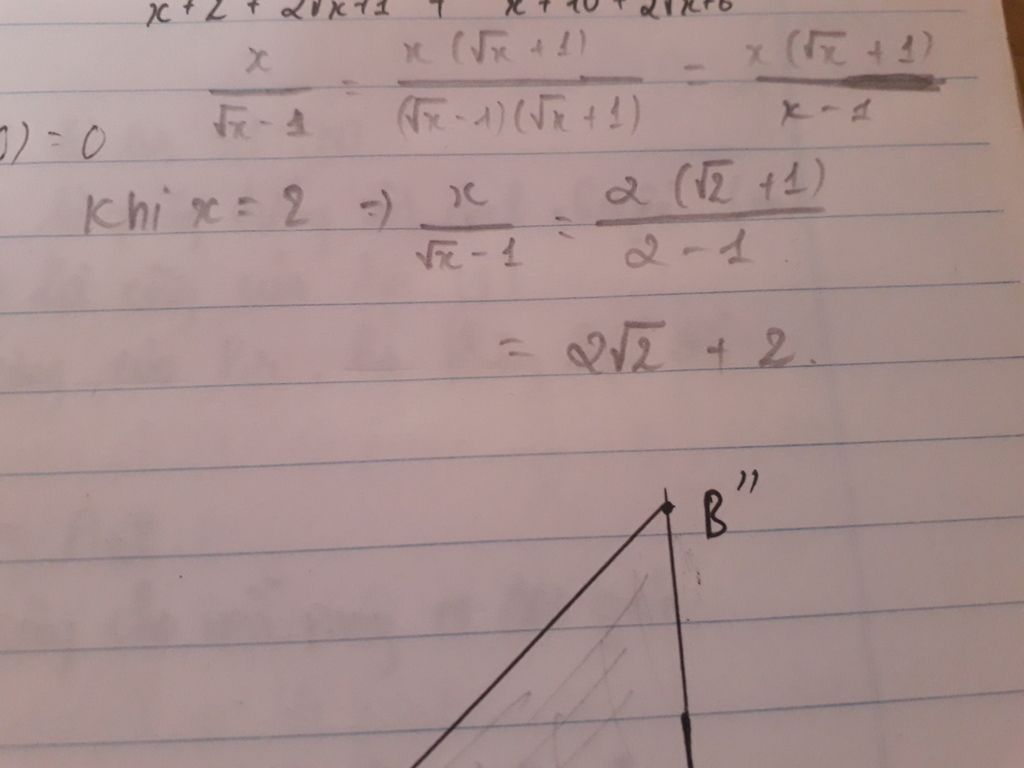 x + 2 + 2√x+1 + x + 10 + 2√x+6
x/(√x - 1) = x(√x + 1)/((√x - 1)(√x + 1)) = x(√x + 1)/(x - 1)
) = 0
Khi x = 2 => x/(√x - 1) = 2(√2 + 1)/(2 - 1)
= 2√2 + 2.
B"